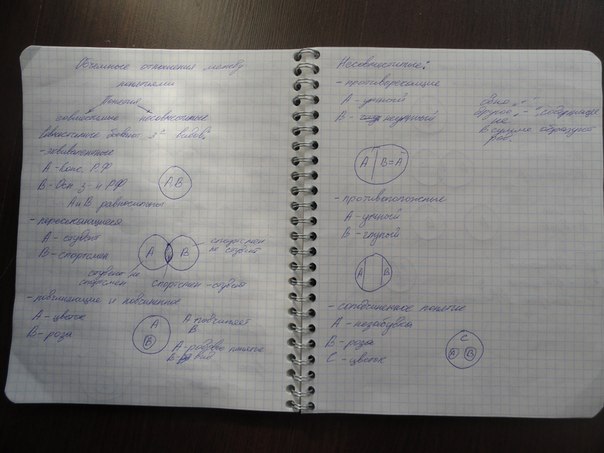 Объемные отношения между
понятиями
Понятия
совместимые несовместимые
Совместимые бывают 3х видов:
- эквивалентные
А - конс. РФ
В - Осн. з-н РФ
А и В равносильны
А,В
- пересекающиеся
А - студент
В - спортсмен
А В
спортсмен
не студент
студент не
спортсмен
спортсмен - студент
- подчиняющие и подчиненное
А - цветок
В - роза
А
В
А подчиняет
В
А - родовое понятие
В - вид
Несовместимые:
- противоречащие
А - умный
В - неумный
одно "+"
другое "-" содержащее
не
В сумме образуют
род.
А В=А
- противоположные
А - умный
В - глупый
А В
- соподчиненное понятие
А - незабудки
В - роза
С - цветок
С
А В